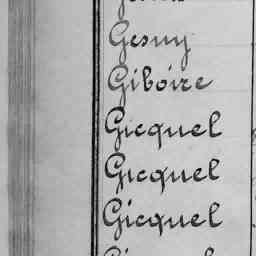 Gesny
Giboire
Gicquel
Gicquel
Gicquel